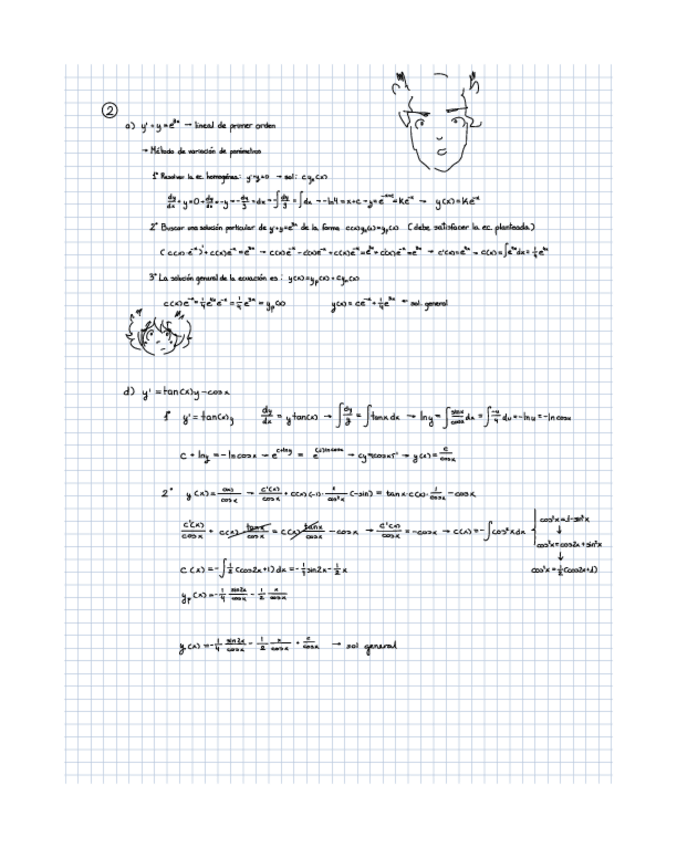 2
a) y' + y = e^3x → lineal de primer orden
→ Método de variación de parámetros
1º Resolver la ec. homogénea: y'+y=0 → sol: c y₁(x)
dy/dx + y = 0 → dy/dx = -y → -dy/y = dx → -∫dy/y = ∫dx → -ln y = x+c → y = e^-x+c = Ke^-x → y(x) = Ke^-x
2º Buscar una solución particular de y'+y=e^3x de la forma c(x)y₁(x)=yₚ(x) (debe satisfacer la ec. planteada)
3º La solución general de la ecuación es: y(x) = yₚ(x) + cy₁(x)
c(x)e^-x = 1/4 e^4x e^-x = 1/4 e^3x = yₚ(x) y(x) = ce^-x + 1/4 e^3x ← sol. general
d) y' = tan(x)y - cos x
1º y' = tan(x)y dy/dx = y tan(x) → ∫dy/y = ∫tan x dx → ln y = ∫ sin x/cos x dx = ∫ -u/u du = -ln u = -ln cos x
2º y(x) = c(x)/cos x → c'(x)/cos x + c(x)·(-1)· 1/cos²x (-sin) = tan x·c(x)· 1/cos x - cos x
c'(x)/cos x + c(x) tan x/cos x = c(x) tan x/cos x - cos x → c'(x)/cos x = -cos x → c(x) = -∫cos²x dx
cos²x = 1-sin²x
↓
cos²x = cos2x + sin²x
↓
cos²x = 1/2 (cos2x+1)
c(x) = -∫ 1/2 (cos2x+1) dx = -1/4 sin2x - 1/2 x
yₚ(x) = -1/4 sin2x/cos x - 1/2 x/cos x
y(x) = -1/4 sin2x/cos x - 1/2 x/cos x + c/cos x → sol general